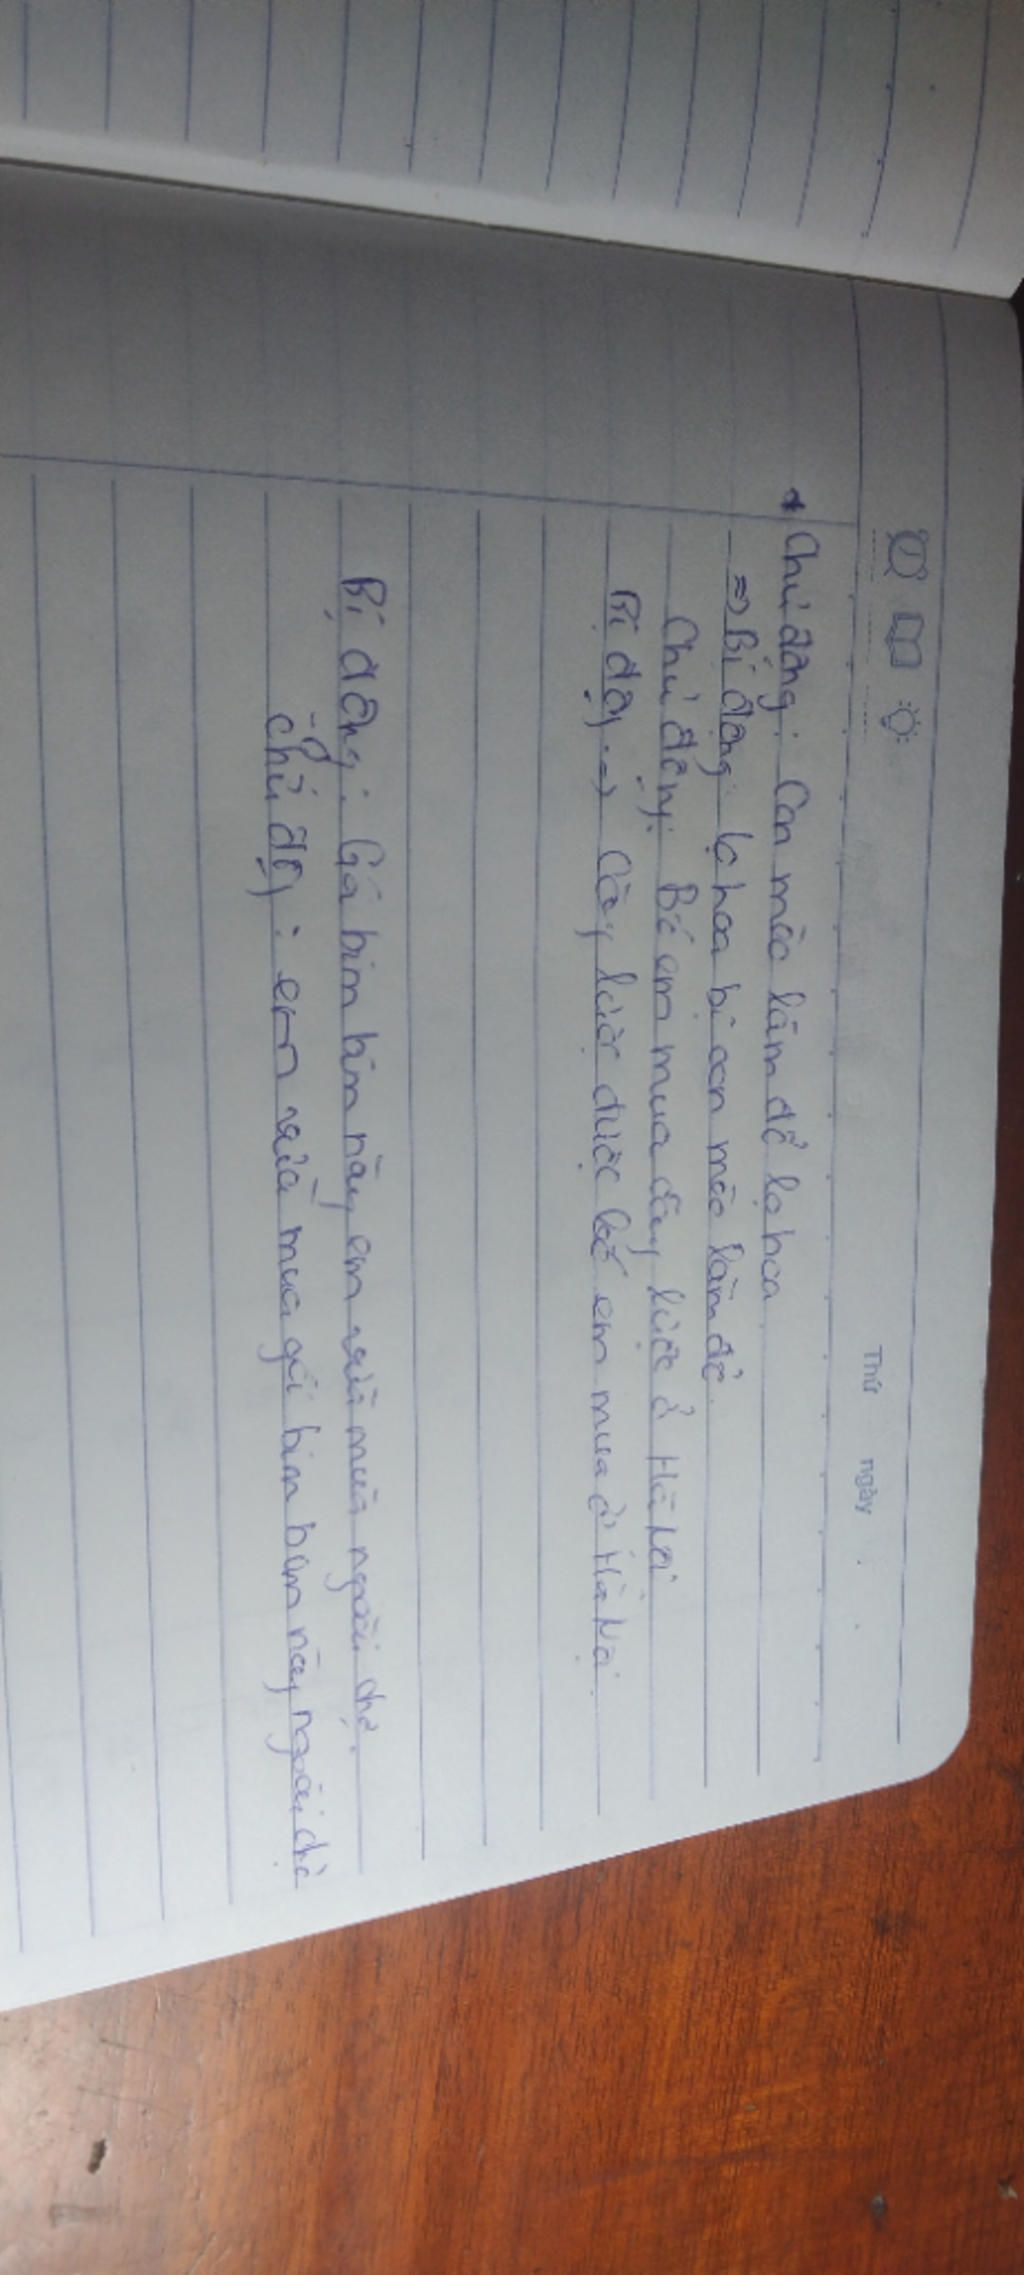 Thứ ngày
* Chủ động: Con mèo làm đổ lọ hoa
=> Bị động: lọ hoa bị con mèo làm đổ.
Chủ động: Bố em mua cây lược ở Hà Nội
Bị độg => Cây lược được bố em mua ở Hà Nội.
Bị động: Gói bim bim này em vừa mua ngoài chợ.
=> Chủ độg: em vừa mua gói bim bim này ngoài chợ